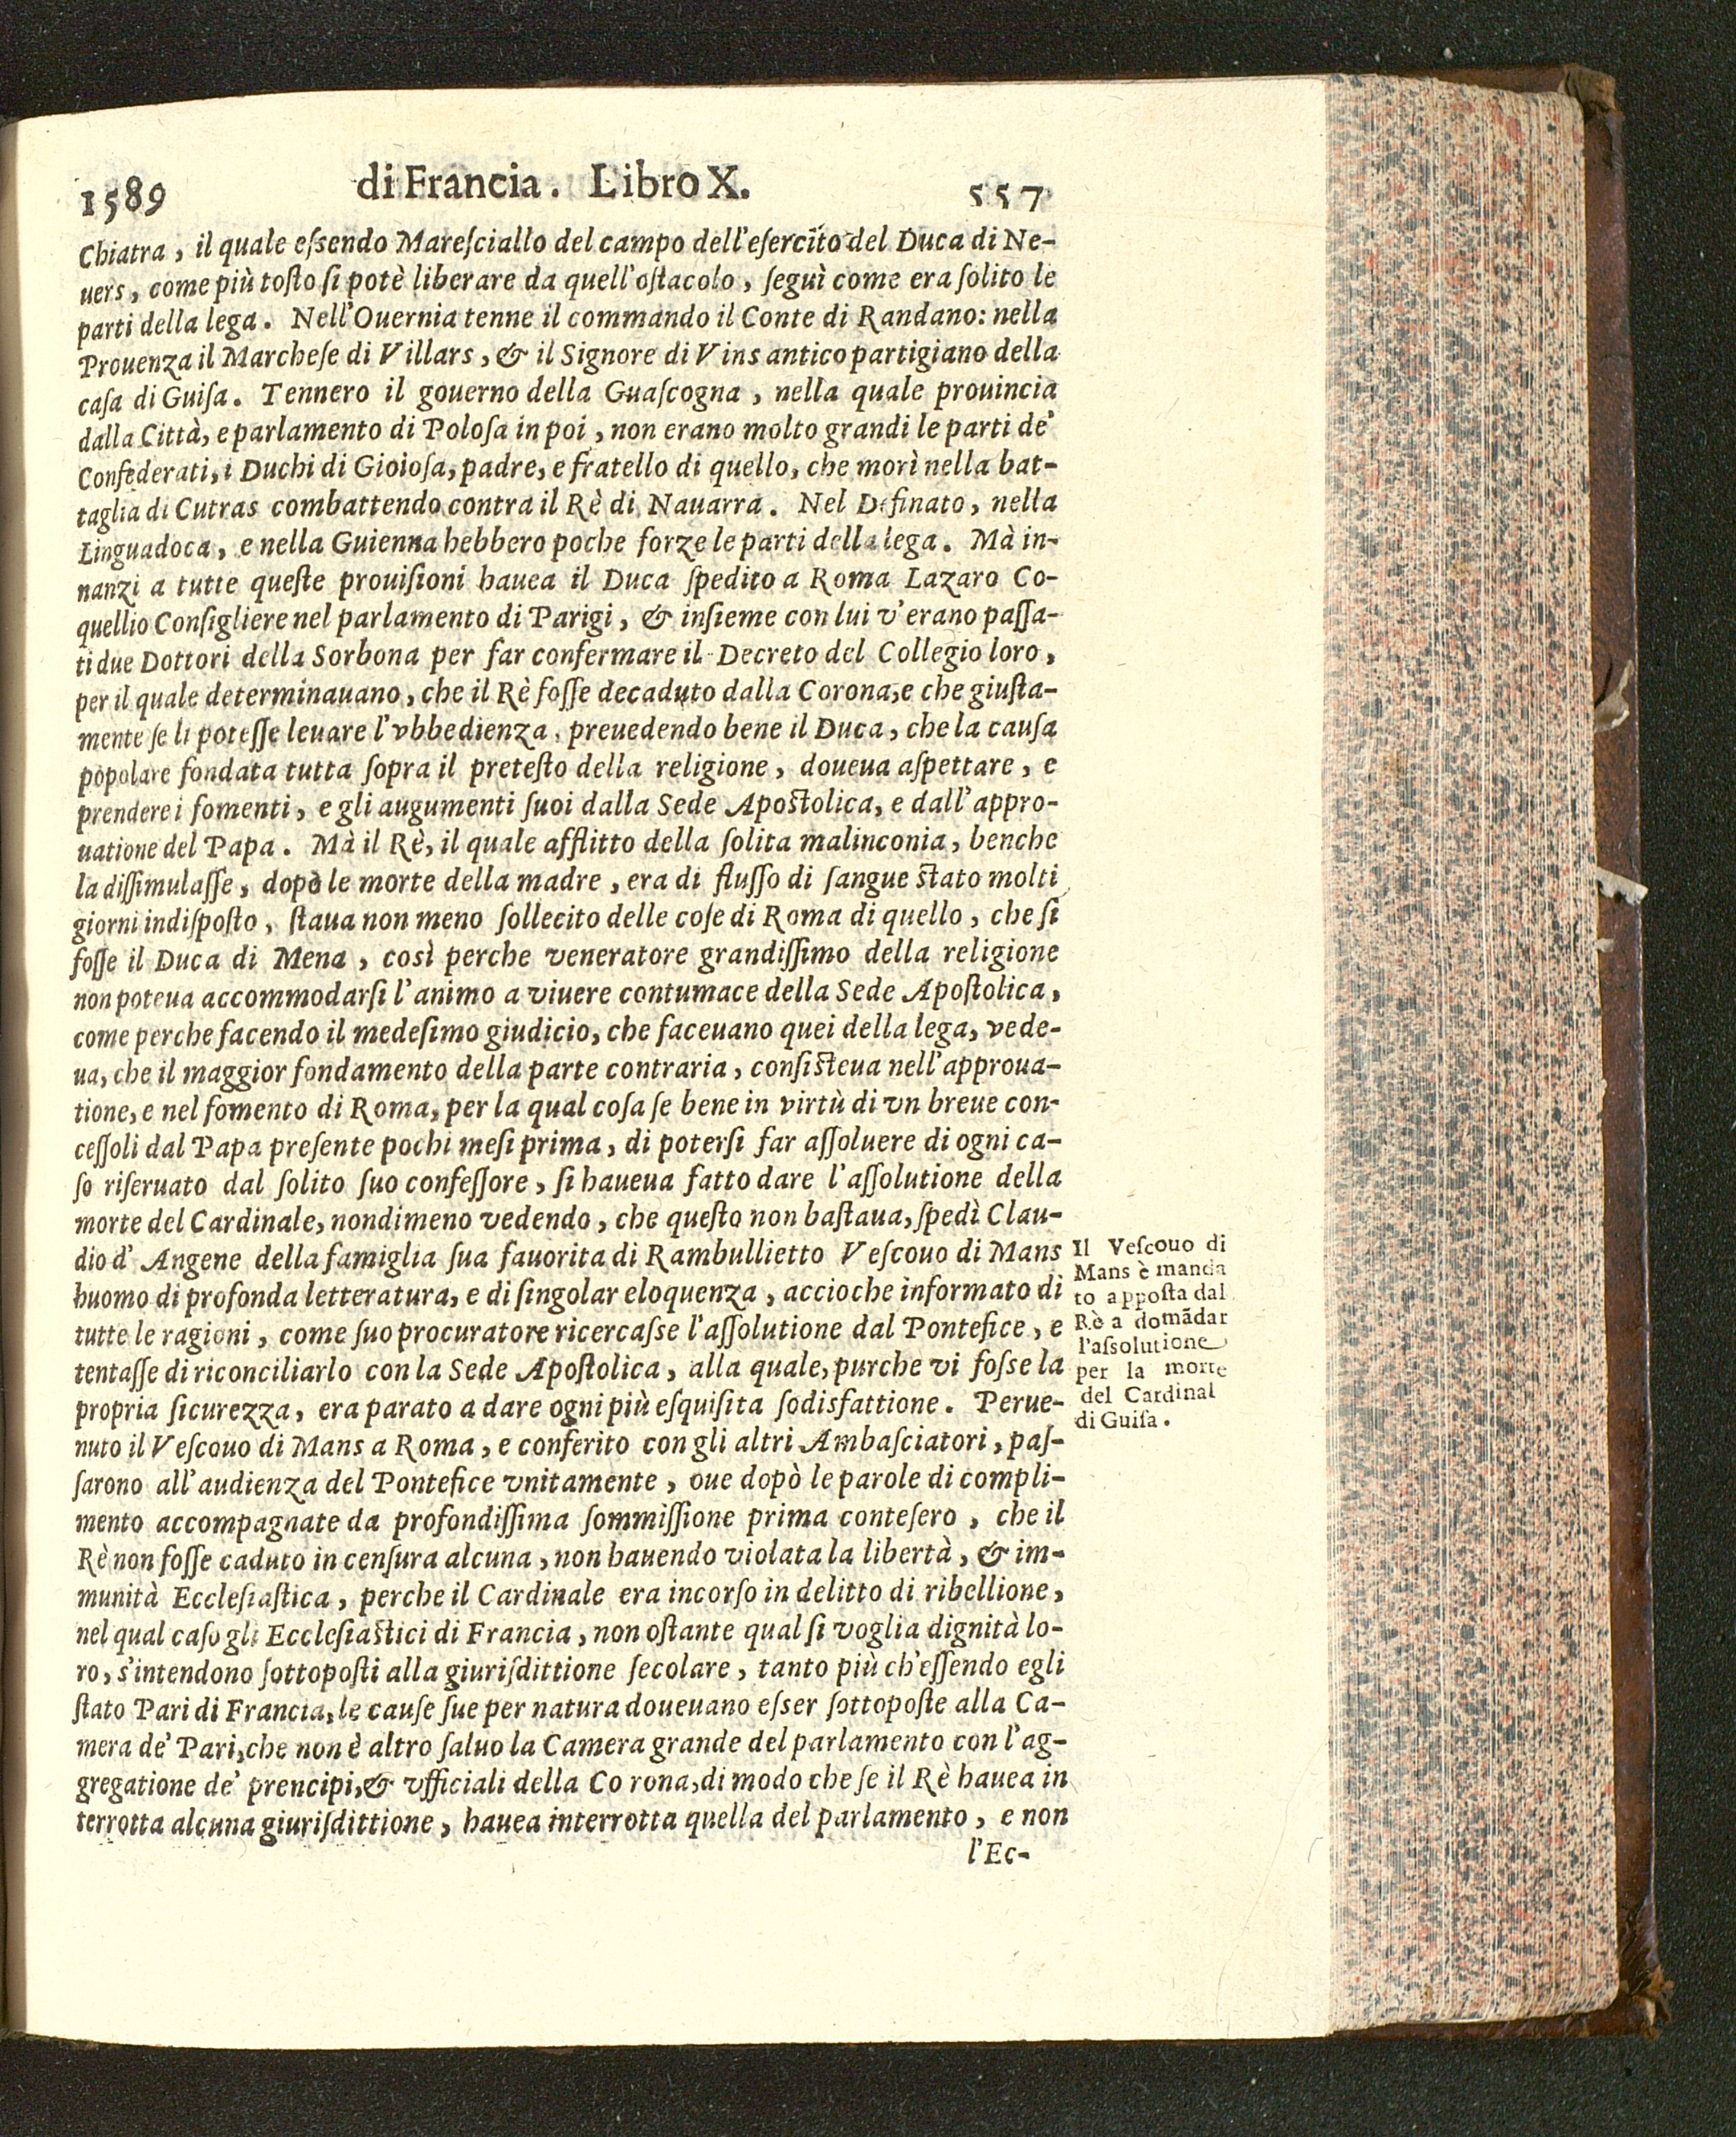 1589 di Francia. Libro X. 557
Chiatra, il quale eſsendo Mareſciallo del campo dell'eſercito del Duca di Ne-
uers, come più toſto ſi potè liberare da quell'oſtacolo, ſeguì come era ſolito le
parti della lega. Nell'Ouernia tenne il commando il Conte di Randano: nella
Prouenza il Marcheſe di Villars, & il Signore di Vins antico partigiano della
caſa di Guiſa. Tennero il gouerno della Guaſcogna, nella quale prouincia
dalla Città, e parlamento di Poloſa in poi, non erano molto grandi le parti de'
Confederati, i Duchi di Gioioſa, padre, e fratello di quello, che morì nella bat-
taglia di Cutras combattendo contra il Rè di Nauarra. Nel Definato, nella
Linguadoca, e nella Guienna hebbero poche forze le parti della lega. Mà in-
nanzi a tutte queſte prouiſioni hauea il Duca ſpedito a Roma Lazaro Co-
quellio Conſigliere nel parlamento di Parigi, & inſieme con lui v'erano paſſa-
ti due Dottori della Sorbona per far confermare il Decreto del Collegio loro,
per il quale determinauano, che il Rè foſſe decaduto dalla Corona, e che giuſta-
mente ſe li poteſſe leuare l'vbbedienza, preuedendo bene il Duca, che la cauſa
popolare fondata tutta ſopra il preteſto della religione, doueua aſpettare, e
prendere i fomenti, e gli augumenti ſuoi dalla Sede Apoſtolica, e dall'appro-
uatione del Papa. Mà il Rè, il quale afflitto della ſolita malinconia, benche
la diſſimulaſſe, dopò le morte della madre, era di fluſſo di ſangue ſtato molti
giorni indiſpoſto, ſtaua non meno ſollecito delle coſe di Roma di quello, che ſi
foſſe il Duca di Mena, così perche veneratore grandiſſimo della religione
non poteua accommodarſi l'animo a viuere contumace della Sede Apoſtolica,
come perche facendo il medeſimo giudicio, che faceuano quei della lega, vede-
ua, che il maggior fondamento della parte contraria, conſiſteua nell'approua-
tione, e nel fomento di Roma, per la qual coſa ſe bene in virtù di vn breue con-
ceſſoli dal Papa preſente pochi meſi prima, di poterſi far aſſoluere di ogni ca-
ſo riſeruato dal ſolito ſuo confeſſore, ſi haueua fatto dare l'aſſolutione della
morte del Cardinale, nondimeno vedendo, che queſto non baſtaua, ſpedì Clau-
dio d' Angene della famiglia ſua fauorita di Rambullietto Veſcouo di Mans
huomo di profonda letteratura, e di ſingolar eloquenza, accioche informato di
tutte le ragioni, come ſuo procuratore ricercaſse l'aſſolutione dal Pontefice, e
tentaſſe di riconciliarlo con la Sede Apoſtolica, alla quale, purche vi foſse la
propria ſicurezza, era parato a dare ogni più eſquiſita ſodisfattione. Perue-
nuto il Veſcouo di Mans a Roma, e conferito con gli altri Ambaſciatori, paſ-
ſarono all'audienza del Pontefice vnitamente, oue dopò le parole di compli-
mento accompagnate da profondiſſima ſommiſſione prima conteſero, che il
Rè non foſſe caduto in cenſura alcuna, non hauendo violata la libertà, & im-
munità Eccleſiaſtica, perche il Cardinale era incorſo in delitto di ribellione,
nel qual caſo gli Eccleſiaſtici di Francia, non oſtante qual ſi voglia dignità lo-
ro, s'intendono ſottopoſti alla giuriſdittione ſecolare, tanto più ch'eſſendo egli
ſtato Pari di Francia, le cauſe ſue per natura doueuano eſser ſottopoſte alla Ca-
mera de' Pari, che non è altro ſaluo la Camera grande del parlamento con l'ag-
gregatione de' prencipi, & vfficiali della Corona, di modo che ſe il Rè hauea in
terrotta alcuna giuriſdittione, hauea interrotta quella del parlamento, e non
l'Ec-
Il Veſcouo di
Mans è manda
to appoſta dal
Rè a domãdar
l'aſsolutione
per la morte
del Cardinal
di Guiſa.